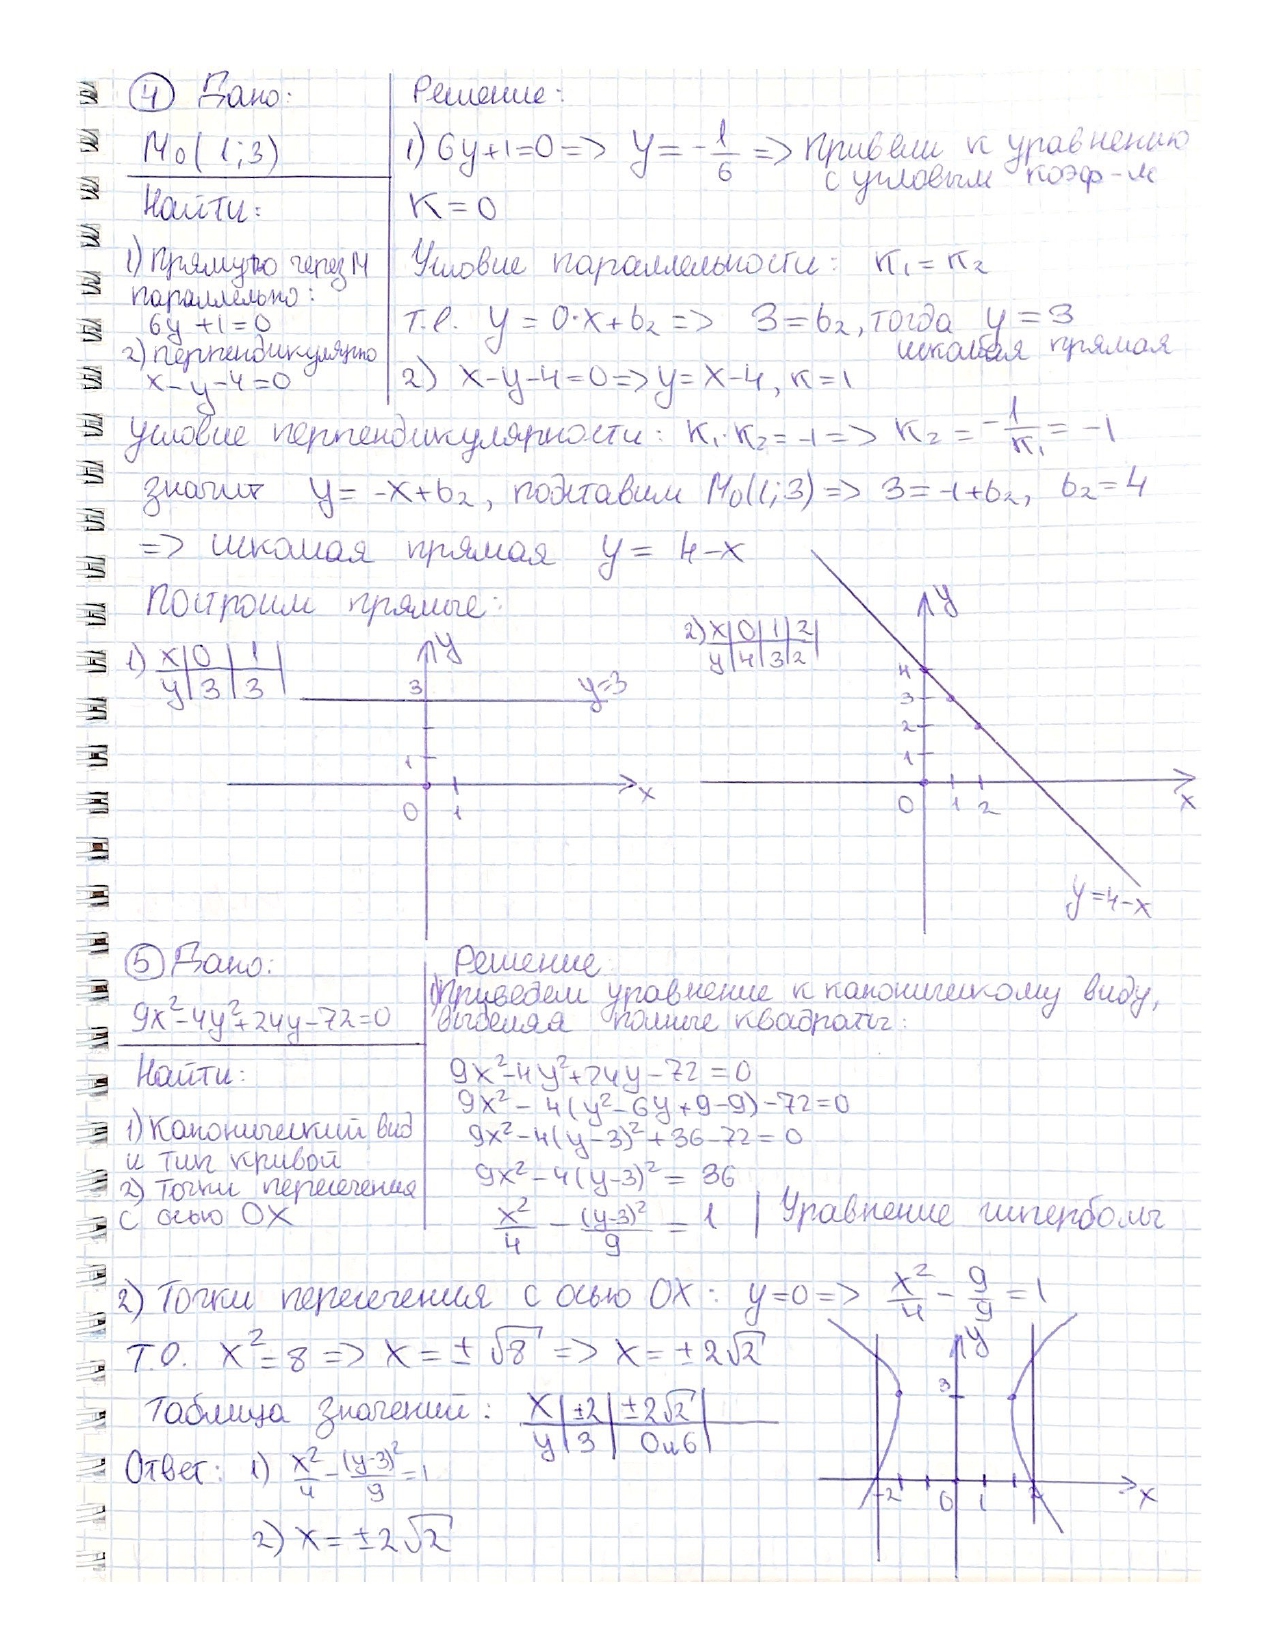 ④ Дано:
M₀(1;3)
Найти:
1) Прямую через M
параллельно:
6y+1=0
2) перпендикулярно
x-y-4=0
Решение:
1) 6y+1=0 => y = -1/6 => Привели к уравнению
с угловым коэф-м
K=0
Условие параллельности: K₁=K₂
т.е. y = 0·x+b₂ => 3=b₂, тогда y=3
искомая прямая
2) x-y-4=0 => y=x-4, K=1
Условие перпендикулярности: K₁·K₂=-1 => K₂ = -1/K₁ = -1
значит y= -x+b₂, подставим M₀(1;3) => 3=-1+b₂, b₂=4
=> искомая прямая y= 4-x
Построим прямые:
1) x|0|1|
y|3|3|
y
3
y=3
1
0 1
x
2) x|0|1|2|
y|4|3|2|
y
4
3
2
1
0 1 2
x
y=4-x
⑤ Дано:
9x²-4y²+24y-72=0
Найти:
1) Канонический вид
и тип кривой
2) Точки пересечения
с осью OX
Решение
1) Приведем уравнение к каноническому виду,
выделяя полные квадраты:
9x²-4y²+24y-72=0
9x²-4(y²-6y+9-9)-72=0
9x²-4(y-3)²+36-72=0
9x²-4(y-3)²=36
x²/4 - (y-3)²/9 = 1 | Уравнение гиперболы
2) Точки пересечения с осью OX: y=0 => x²/4 - 9/9 = 1
Т.о. x²=8 => x=±√8 => x=±2√2
Таблица значений: x|±2|±2√2|
y|3|0и6|
Ответ: 1) x²/4 - (y-3)²/9 = 1
2) x=±2√2
y
3
-2 0 1
x